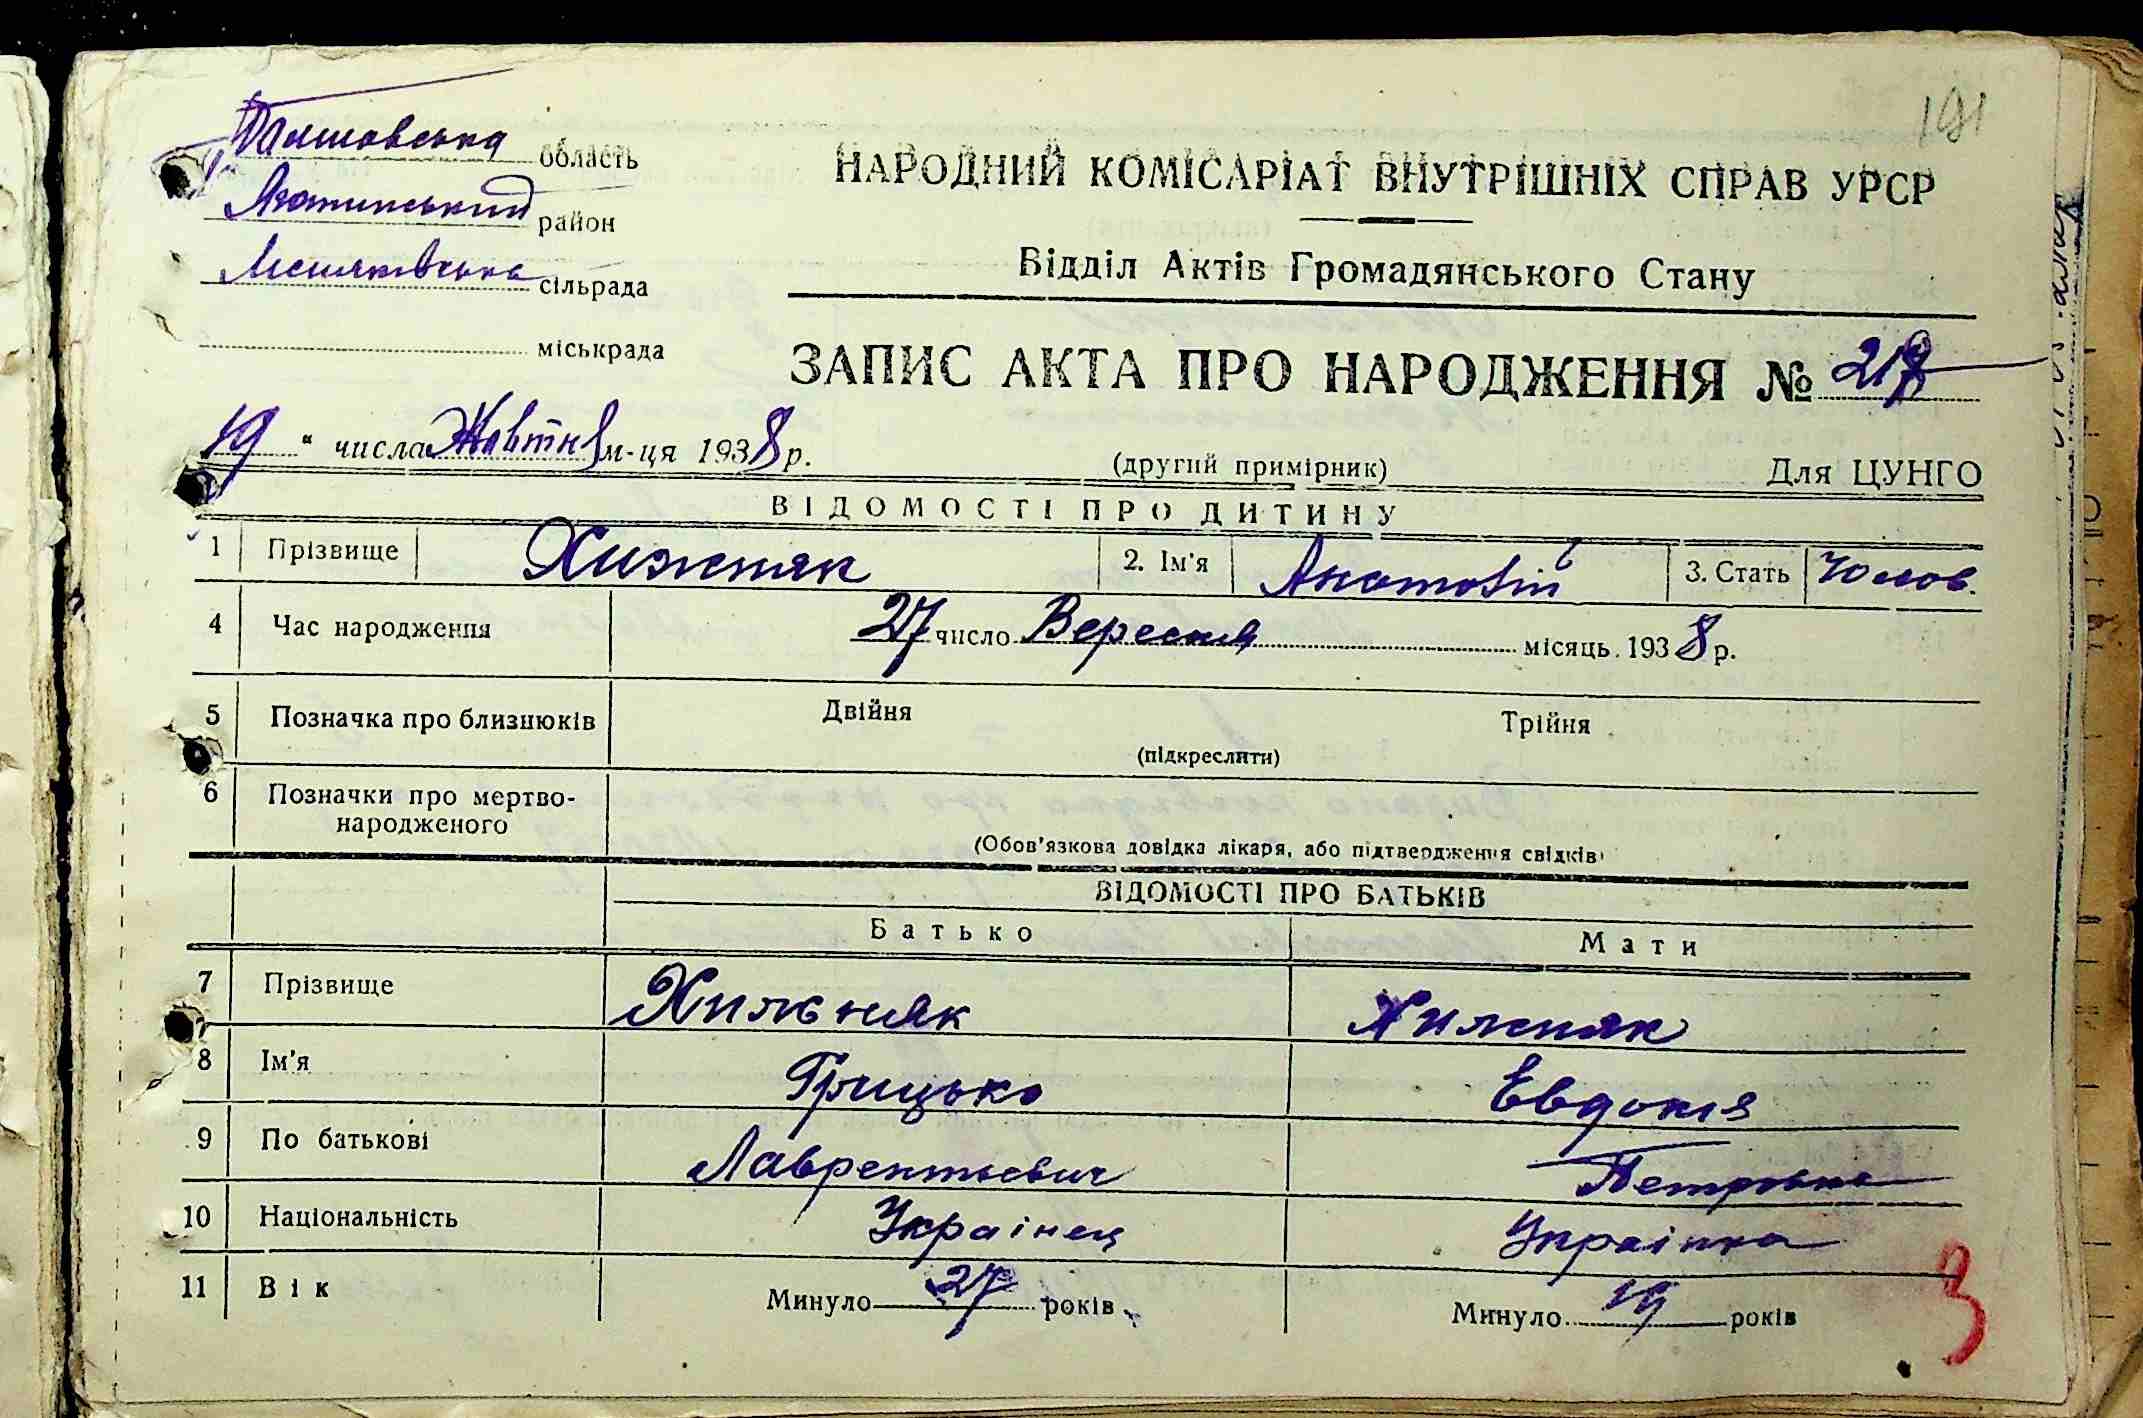 191
Полтавська область
Яготинський район
Лемляківська сільрада
міськрада
НАРОДНИЙ КОМІСАРІАТ ВНУТРІШНІХ СПРАВ УРСР
Відділ Актів Громадянського Стану
ЗАПИС АКТА ПРО НАРОДЖЕННЯ №
19 " числа Жовтня м-ця 1938 р.
(другий примірник) Для ЦУНГО
ВІДОМОСТІ ПРО ДИТИНУ
1 Прізвище Хижняк 2. Ім'я Анатолій 3. Стать Чолов.
4 Час народження 27 число Вересня місяць 1938 р.
5 Позначка про близнюків Двійня Трійня
(підкреслити)
6 Позначки про мертво-
народженого
(Обов'язкова довідка лікаря, або підтвердження свідків)
ВІДОМОСТІ ПРО БАТЬКІВ
Батько Мати
7 Прізвище Хижняк Хижняк
8 Ім'я Грицько Евдокія
9 По батькові Лаврентьевич Петровна
10 Національність Украінец Украінка
11 Вік Минуло 27 років Минуло 19 років
3